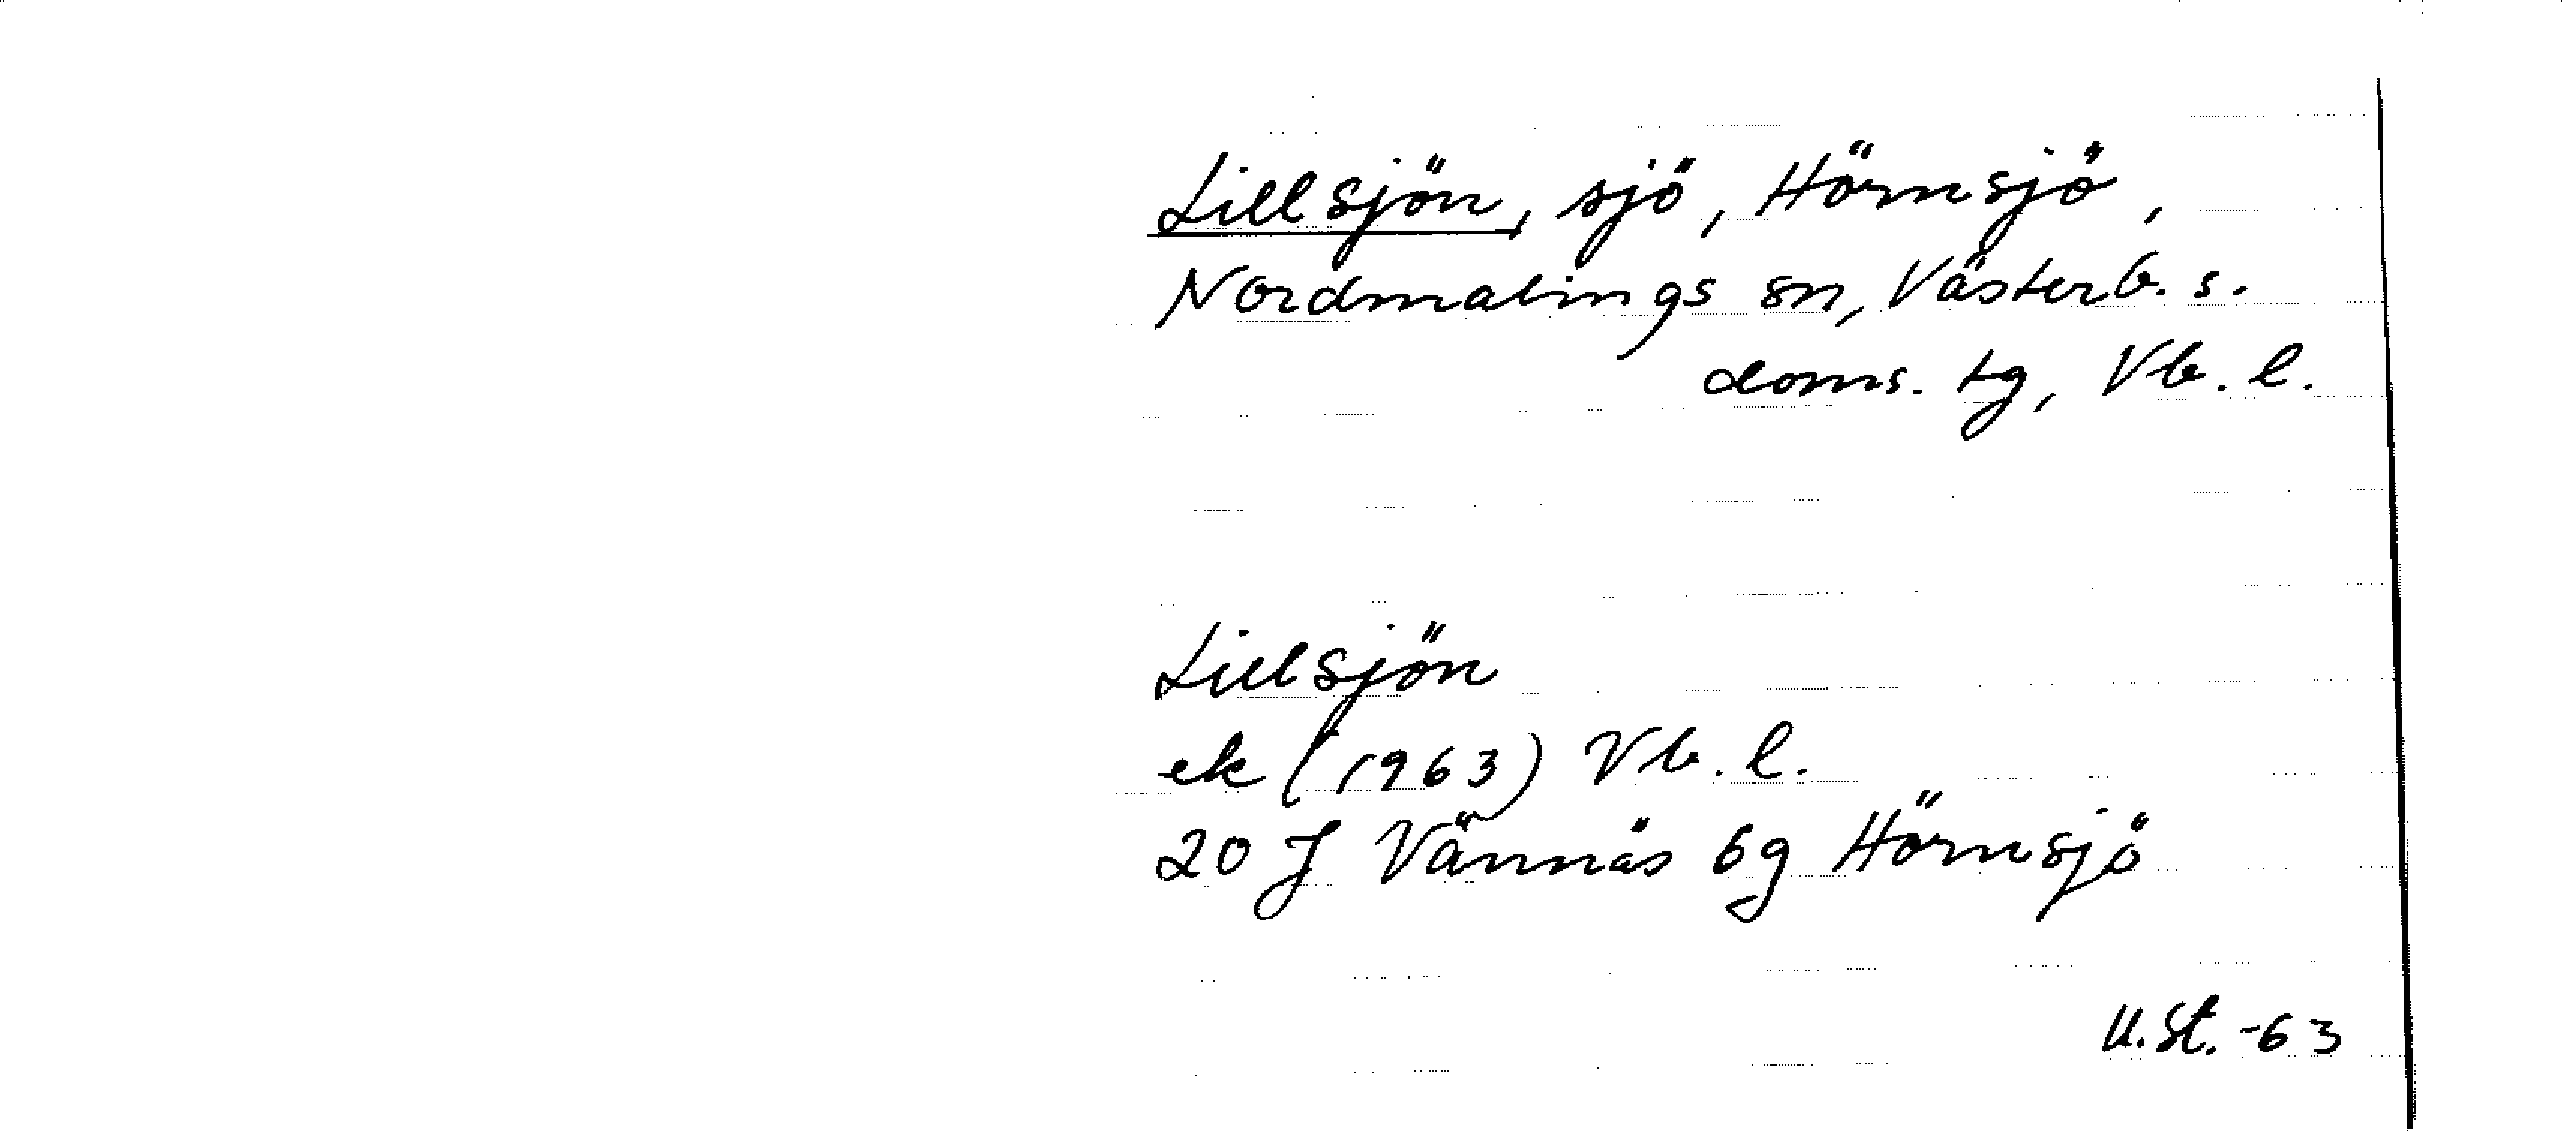 Lillsjön, sjö, Hörnsjö,
Nordmalings sn, Västerb. s.
doms. tg, Vb. l.
Lillsjön
ek (1963) Vb. l.
20 J Vännäs 6g Hörnsjö
U.St. -63